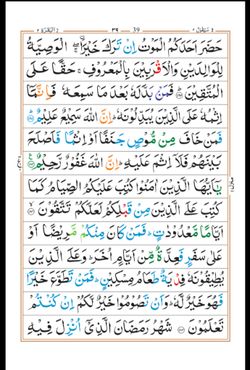 سيقول ٢ ٣٩ 39 البقرة ٢
حَضَرَ اَحَدَكُمُ الۡمَوۡتُ اِنۡ تَرَكَ خَيۡرَا ۖۚ اۨلۡوَصِيَّةُ
لِلۡوَالِدَيۡنِ وَالۡاَقۡرَبِيۡنَ بِالۡمَعۡرُوۡفِۚ حَقًّا عَلَى
الۡمُتَّقِيۡنَؕ‏ فَمَنۡۢ بَدَّلَهٗ بَعۡدَمَا سَمِعَهٗ فَاِنَّمَآ
اِثۡمُهٗ عَلَى الَّذِيۡنَ يُبَدِّلُوۡنَهٗؕ اِنَّ اللّٰهَ سَمِيۡعٌ عَلِيۡمٌؕ‏
فَمَنۡ خَافَ مِنۡ مُّوۡصٍ جَنَفًا اَوۡ اِثۡمًا فَاَصۡلَحَ
بَيۡنَهُمۡ فَلَاۤ اِثۡمَ عَلَيۡهِؕ اِنَّ اللّٰهَ غَفُوۡرٌ رَّحِيۡمٌ‏
يٰٓاَيُّهَا الَّذِيۡنَ اٰمَنُوۡا كُتِبَ عَلَيۡکُمُ الصِّيَامُ كَمَا
كُتِبَ عَلَى الَّذِيۡنَ مِنۡ قَبۡلِکُمۡ لَعَلَّكُمۡ تَتَّقُوۡنَۙ‏
اَيَّامًا مَّعۡدُوۡدٰتٍؕ فَمَنۡ كَانَ مِنۡكُمۡ مَّرِيۡضًا اَوۡ
عَلٰى سَفَرٍ فَعِدَّةٌ مِّنۡ اَيَّامٍ اُخَرَؕ وَعَلَى الَّذِيۡنَ
يُطِيۡقُوۡنَهٗ فِدۡيَةٌ طَعَامُ مِسۡكِيۡنٍؕ فَمَنۡ تَطَوَّعَ خَيۡرًا
فَهُوَ خَيۡرٌ لَّهٗؕ وَاَنۡ تَصُوۡمُوۡا خَيۡرٌ لَّـکُمۡ اِنۡ كُنۡتُمۡ
تَعۡلَمُوۡنَ‏ شَهۡرُ رَمَضَانَ الَّذِىۡٓ اُنۡزِلَ فِيۡهِ